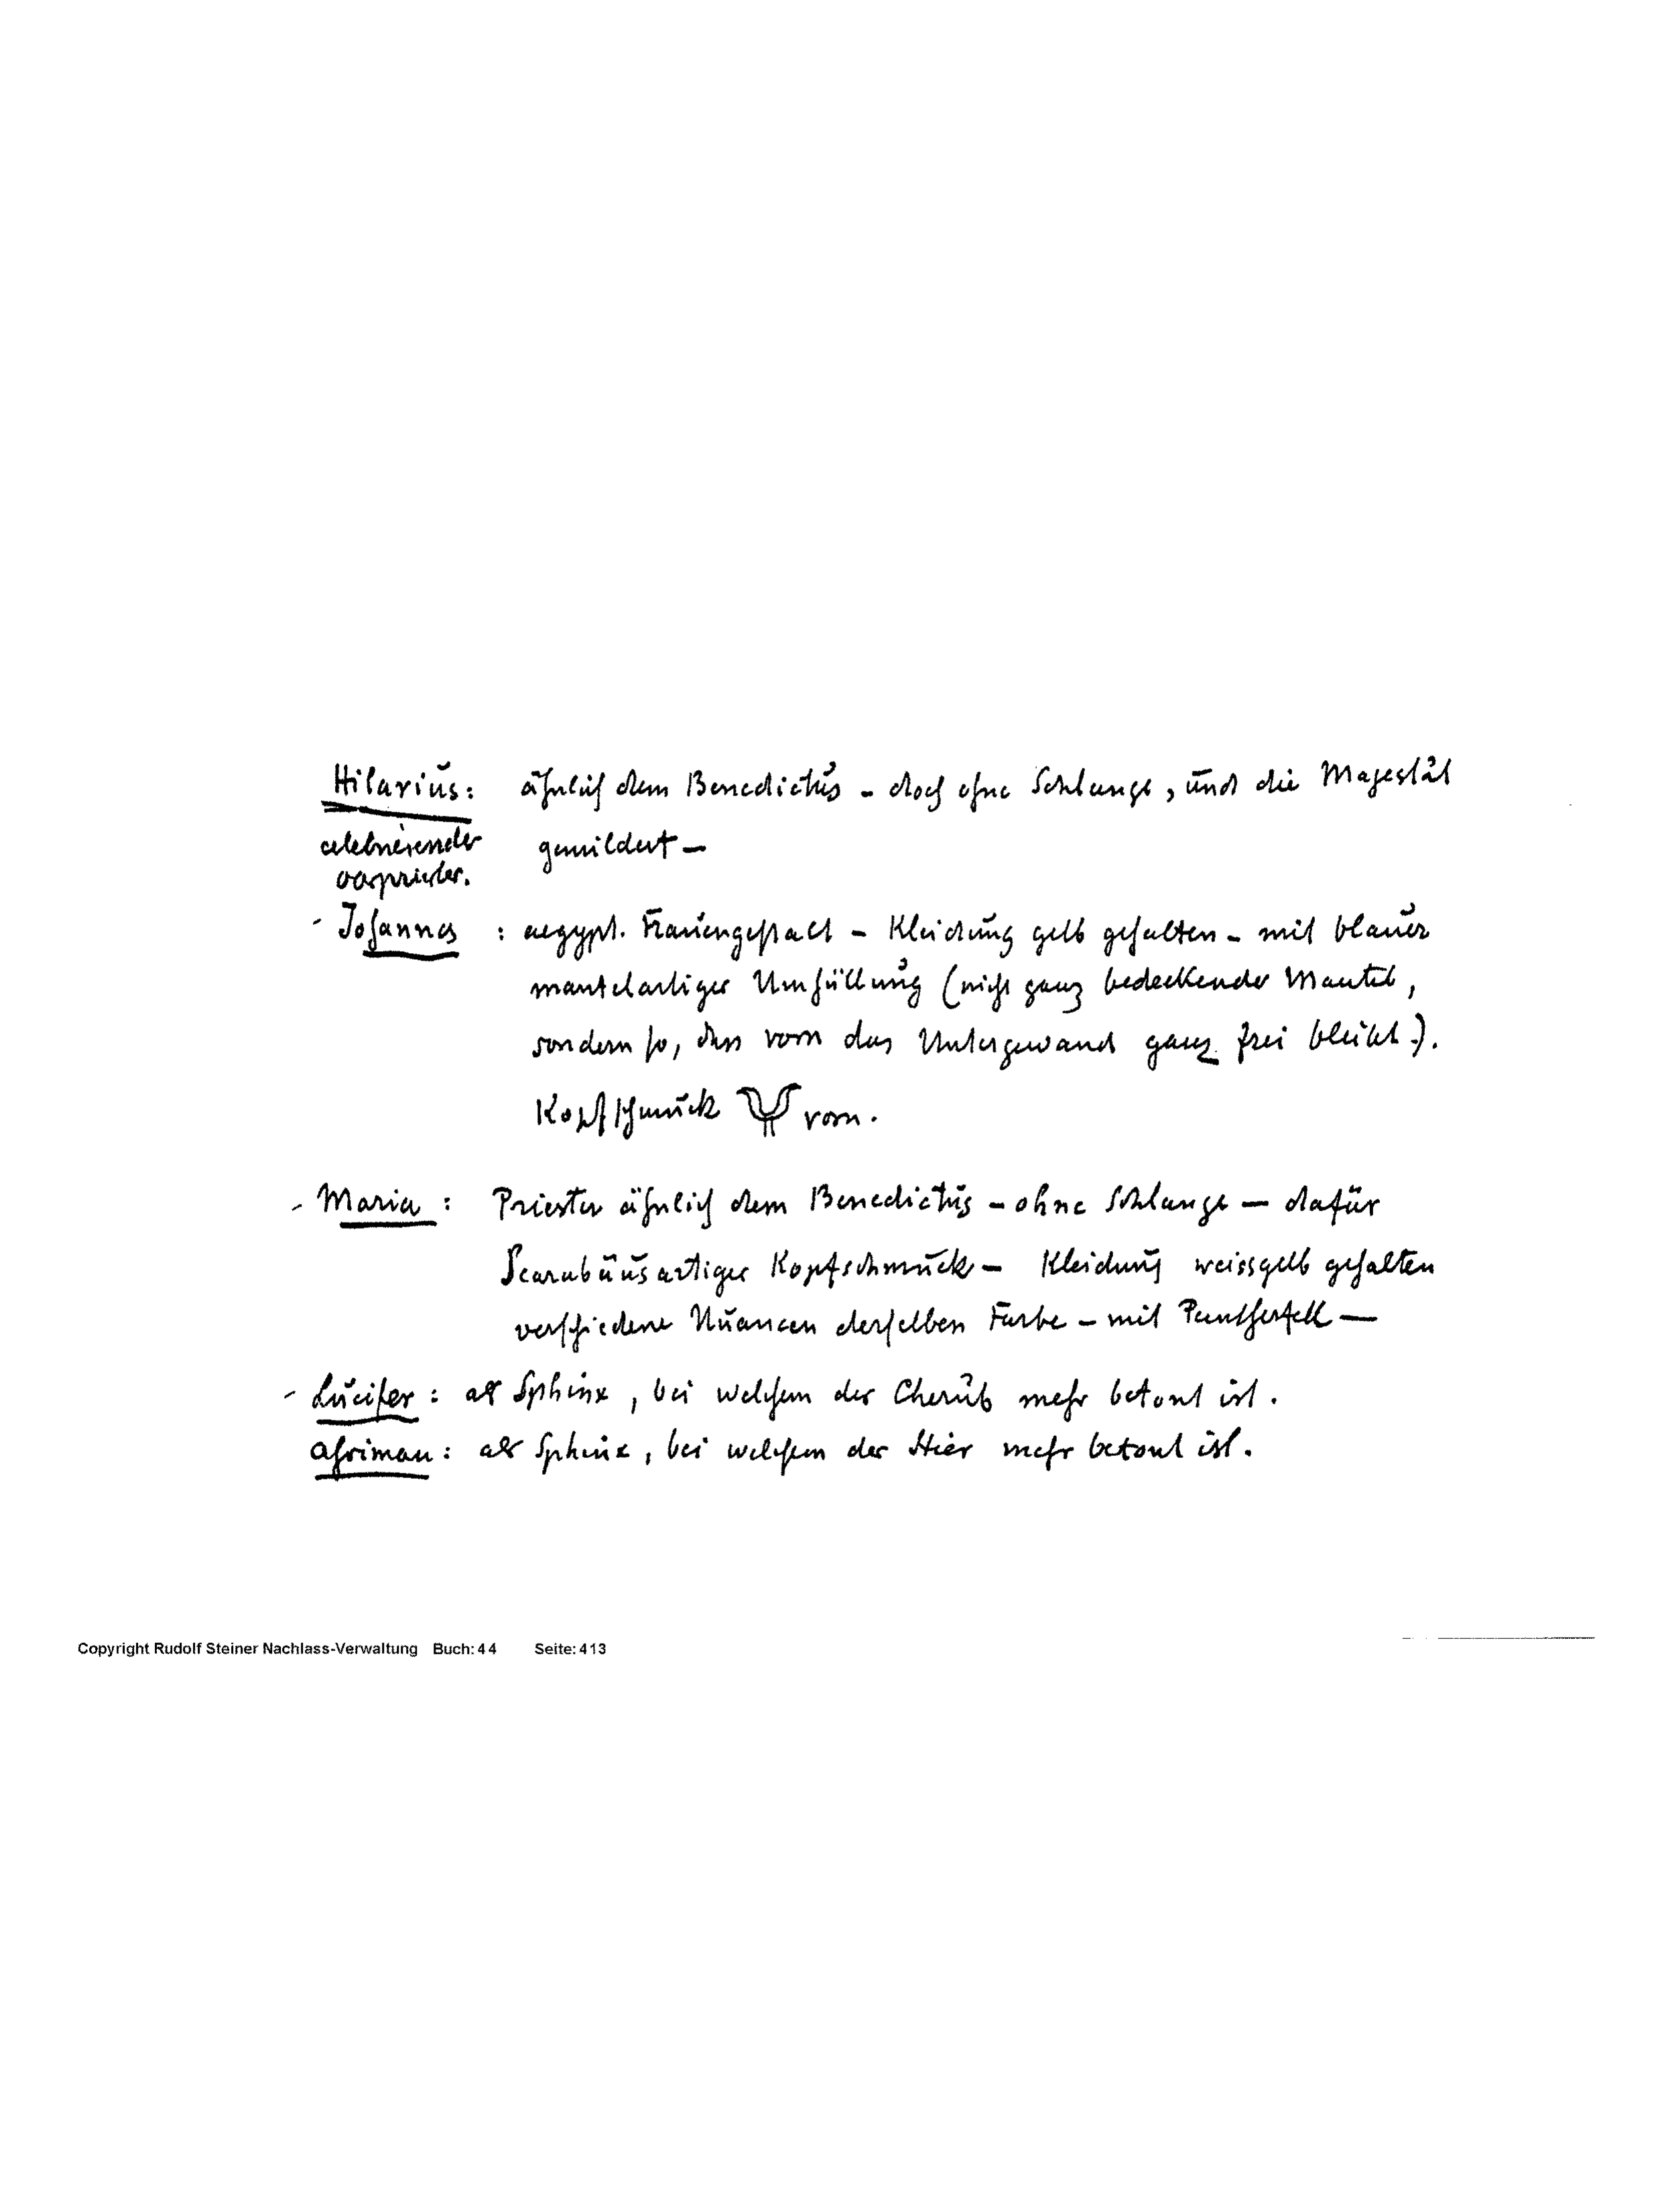 Hilarius: ähnlich dem Benedictus - doch ohne Schlange, und die Majestät
celebrierender gemildert -
- Johannes : aegypt. Frauengestalt - Kleidung gelb gehalten - mit blauer
mantelartiger Umhüllung (nicht ganz bedeckender Mantel,
sondern so, dass vorn das Untergewand ganz frei bleibt).
Kopfschmuck vorn.
- Maria : Priester ähnlich dem Benedictus - ohne Schlange - dafür
Scarabäusartiger Kopfschmuck - Kleidung weissgelb gehalten
verschiedene Nuancen derselben Farbe - mit Pantherfell -
- Lucifer : als Sphinx, bei welchem der Cherub mehr betont ist.
Ahriman : als Sphinx, bei welchem der Stier mehr betont ist.
Copyright Rudolf Steiner Nachlass-Verwaltung Buch: 44 Seite: 413